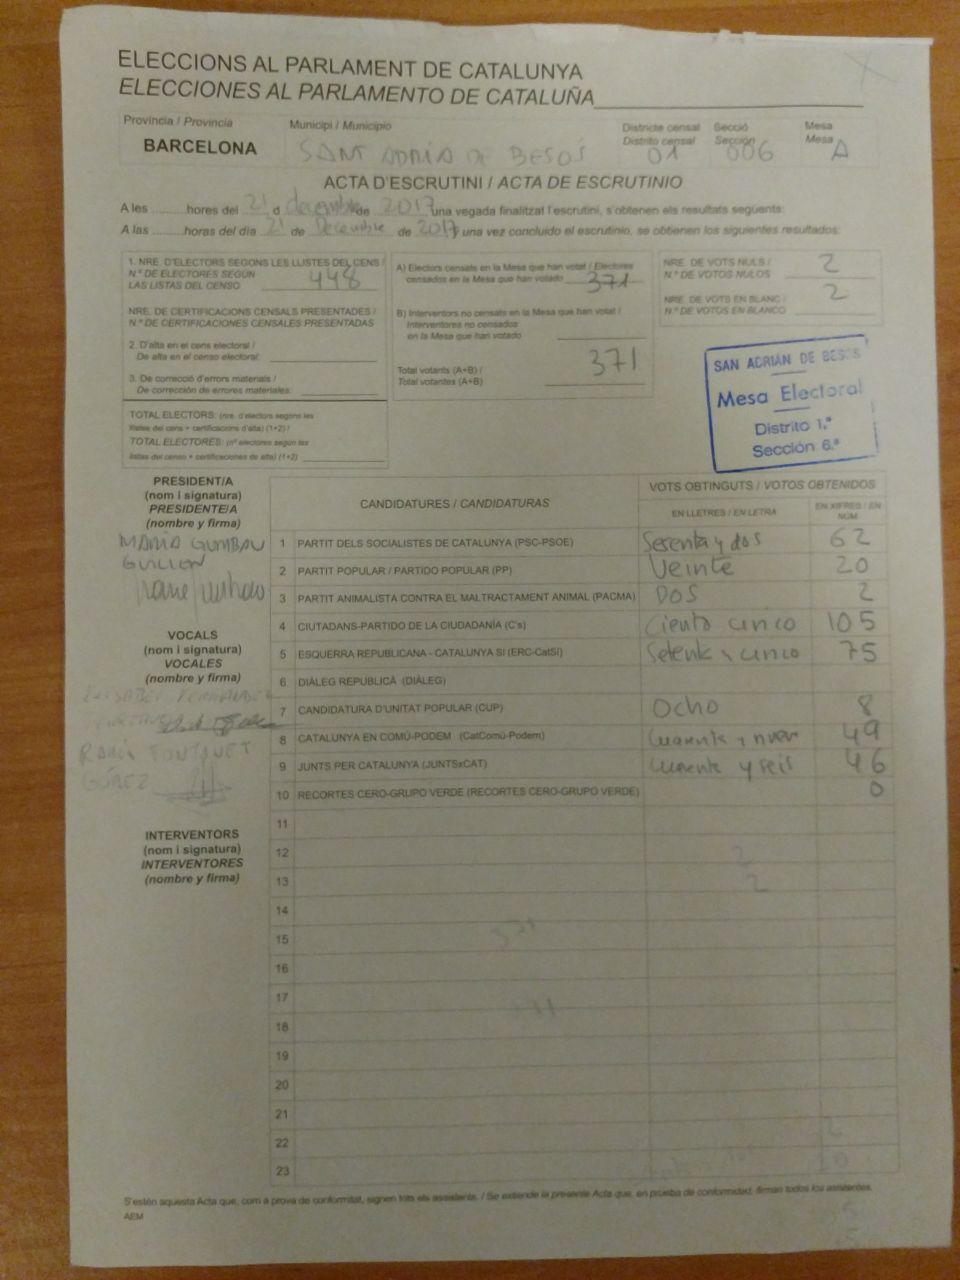 ELECCIONS AL PARLAMENT DE CATALUNYA
ELECCIONES AL PARLAMENTO DE CATALUÑA
Provincia / Provincia
BARCELONA
Municipi / Municipio
SANT ADRIÀ DE BESOS
Districte censal
Distrito censal
01
Secció
Sección
006
Mesa
Mesa
A
ACTA D'ESCRUTINI / ACTA DE ESCRUTINIO
A les ......... hores del 21 d decembre de 2017 una vegada finalitzat l'escrutini, s'obtenen els resultats següents:
A las ......... horas del día 21 de Decembre de 2017 y una vez concluido el escrutinio, se obtienen los siguientes resultados:
1. NRE. D'ELECTORS SEGONS LES LLISTES DEL CENS /
N.º DE ELECTORES SEGÚN
LAS LISTAS DEL CENSO 448
NRE. DE CERTIFICACIONS CENSALS PRESENTADES /
N.º DE CERTIFICACIONES CENSALES PRESENTADAS
2. D'alta en el cens electoral /
De alta en el censo electoral:
3. De correcció d'errors materials /
De corrección de errores materiales:
TOTAL ELECTORS: (nre. d'electors segons les
llistes del cens + certificacions d'alta) (1+2) /
TOTAL ELECTORES: (nº electores según las
listas del censo + certificaciones de alta) (1+2)
A) Electors censats en la Mesa que han votat / Electores
censados en la Mesa que han votado 371
B) Interventors no censats en la Mesa que han votat /
Interventores no censados
en la Mesa que han votado
Total votants (A+B) /
Total votantes (A+B) 371
NRE. DE VOTS NULS /
N.º DE VOTOS NULOS 2
NRE. DE VOTS EN BLANC /
N.º DE VOTOS EN BLANCO 2
SAN ADRIÁN DE BESÓS
Mesa Electoral
Distrito 1.ª
Sección 6.ª
PRESIDENT/A
(nom i signatura)
PRESIDENTE/A
(nombre y firma)
MARIA GUMBAU
GUILLEN
VOCALS
(nom i signatura)
VOCALES
(nombre y firma)
FERNANDEZ
FONTANET
INTERVENTORS
(nom i signatura)
INTERVENTORES
(nombre y firma)
CANDIDATURES / CANDIDATURAS
VOTS OBTINGUTS / VOTOS OBTENIDOS
EN LLETRES / EN LETRA
EN XIFRES / EN NÚM.
1 PARTIT DELS SOCIALISTES DE CATALUNYA (PSC-PSOE) Sesenta y dos 62
2 PARTIT POPULAR / PARTIDO POPULAR (PP) Veinte 20
3 PARTIT ANIMALISTA CONTRA EL MALTRACTAMENT ANIMAL (PACMA) DOS 2
4 CIUTADANS-PARTIDO DE LA CIUDADANÍA (C's) Ciento cinco 105
5 ESQUERRA REPUBLICANA - CATALUNYA SÍ (ERC-CatSí) Setenta y cinco 75
6 DIÀLEG REPUBLICÀ (DIÀLEG)
7 CANDIDATURA D'UNITAT POPULAR (CUP) Ocho 8
8 CATALUNYA EN COMÚ-PODEM (CatComú-Podem) Cuarenta y nueve 49
9 JUNTS PER CATALUNYA (JUNTSxCAT) Cuarenta y seis 46
10 RECORTES CERO-GRUPO VERDE (RECORTES CERO-GRUPO VERDE) 0
11
12
13
14
15
16
17
18
19
20
21
22
23
S'estén aquesta Acta que, com a prova de conformitat, signen tots els assistents. / Se extiende la presente Acta que, en prueba de conformidad, firman todos los asistentes.
AEM